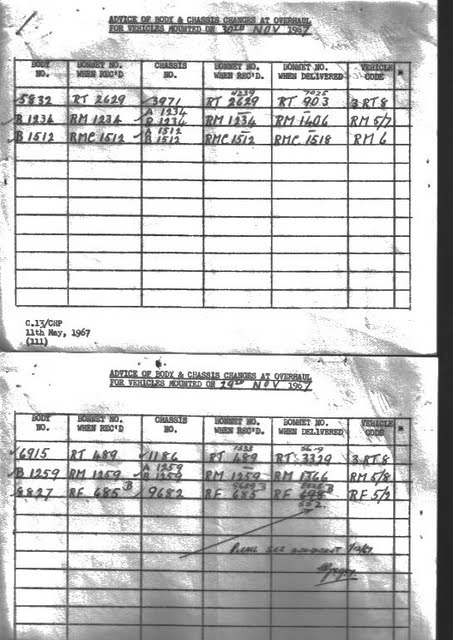 ADVICE OF BODY & CHASSIS CHANGES AT OVERHAUL
FOR VEHICLES MOUNTED ON 30TH NOV 1967
BODY NO. BONNET NO. WHEN REC'D CHASSIS NO. BONNET NO. WHEN REC'D. BONNET NO. WHEN DELIVERED VEHICLE CODE *
4239 7025
✓5832 RT 2629 ✓3971 RT 2629 RT 903 3 RT 8
✓B 1234 RM 1234 A 1234 ✓B 1234 RM 1234 RM 1406 RM 5/7
✓B 1512 RMC 1512 A 1512 ✓B 1512 RMC 1512 RMC 1518 RM 6
C.13/CHP
11th May, 1967
(111)
ADVICE OF BODY & CHASSIS CHANGES AT OVERHAUL
FOR VEHICLES MOUNTED ON 29TH NOV 1967
BODY NO. BONNET NO. WHEN REC'D CHASSIS NO. BONNET NO. WHEN REC'D. BONNET NO. WHEN DELIVERED VEHICLE CODE *
✓6915 RT 489 ✓1186 RT 489 RT 3329 3 RT 8
✓B 1259 RM 1259 A 1259 ✓B 1259 RM 1259 RM 1766 RM 5/8
8827 RF 685 B 9682 RF 685 RF 698 RF 5/2
552.
PLEASE SEE